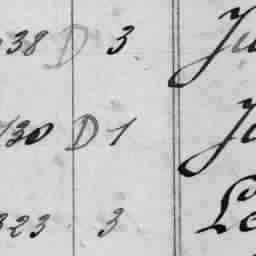 38 D 3 Ju
130 D 1 Ju
323 3 Le